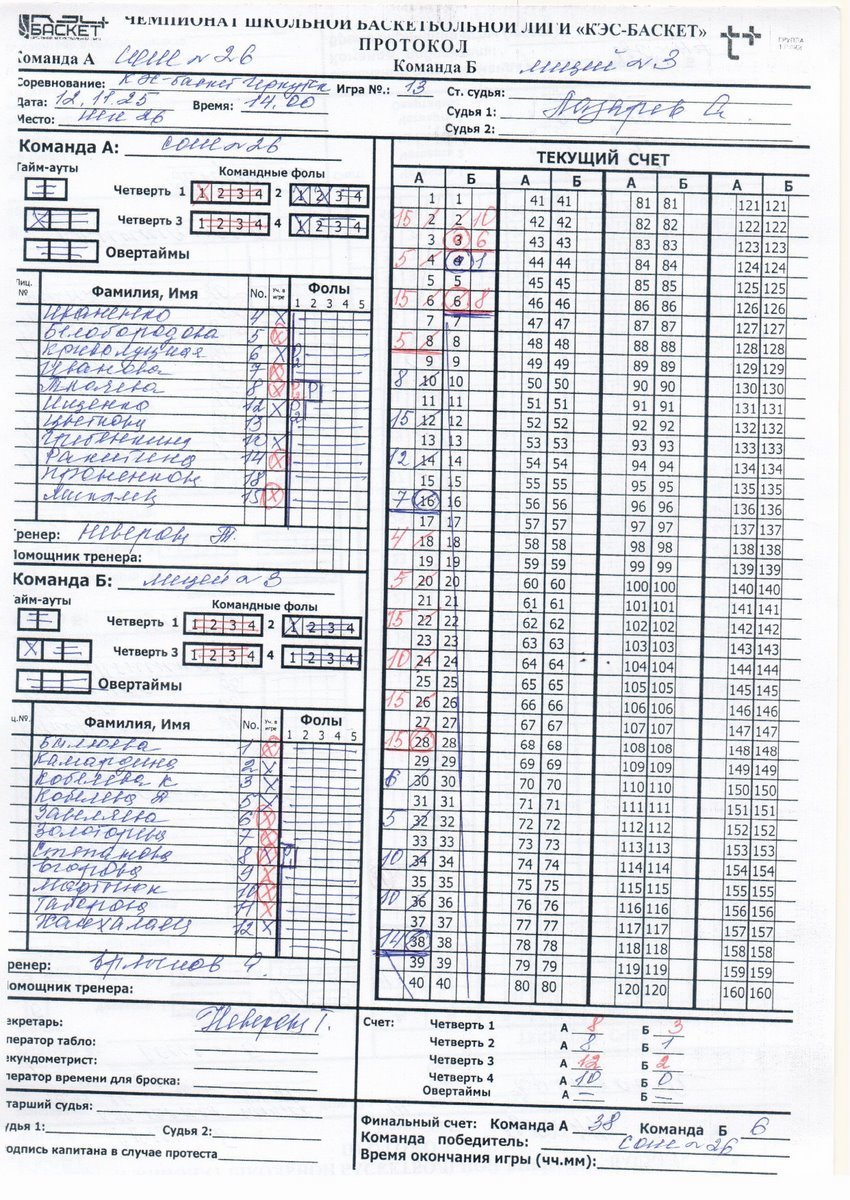 БАСКЕТ
ЧЕМПИОНАТ ШКОЛЬНОЙ БАСКЕТБОЛЬНОЙ ЛИГИ «КЭС-БАСКЕТ»
ПРОТОКОЛ
Команда А сош №26
Команда Б лицей №3
Соревнование: КЭС-баскет Игра №.: 13 Ст. судья:
Дата: 12.11.25 Время: 14.00 Судья 1: Лазарев
Место: 26 Судья 2:
Команда А: сош №26
Тайм-ауты Командные фолы
Четверть 1 1 2 3 4 2 1 2 3 4
Четверть 3 1 2 3 4 4 1 2 3 4
Овертаймы
Лиц. № Фамилия, Имя No. Уч. в игре Фолы 1 2 3 4 5
Иваненко 4 X
Белобородова 5 X
Криволуцкая 6 X
Иванова 7 X
Ткачева 8 X
Ищенко 12 X
13
X
14 X
18
15 X
Тренер: Неверов Т.
Помощник тренера:
Команда Б: лицей №3
Тайм-ауты Командные фолы
Четверть 1 1 2 3 4 2 1 2 3 4
Четверть 3 1 2 3 4 4 1 2 3 4
Овертаймы
Лиц.№. Фамилия, Имя No. Уч. в игре Фолы 1 2 3 4 5
1 X
Камардина 2 X
Кобелева К 3 X
Кобелева 5 X
6 X
7 X
Степанова 8 X
Егорова 9 X
Мартынюк 10 X
11 X
12 X
Тренер:
Помощник тренера:
ТЕКУЩИЙ СЧЕТ
А Б А Б А Б А Б
1 1 41 41 81 81 121 121
15 2 2 10 42 42 82 82 122 122
3 3 6 43 43 83 83 123 123
5 4 4 1 44 44 84 84 124 124
5 5 45 45 85 85 125 125
15 6 6 8 46 46 86 86 126 126
7 7 47 47 87 87 127 127
5 8 8 48 48 88 88 128 128
9 9 49 49 89 89 129 129
8 10 10 50 50 90 90 130 130
11 11 51 51 91 91 131 131
15 12 12 52 52 92 92 132 132
13 13 53 53 93 93 133 133
12 14 14 54 54 94 94 134 134
15 15 55 55 95 95 135 135
7 16 16 56 56 96 96 136 136
17 17 57 57 97 97 137 137
4 18 18 58 58 98 98 138 138
19 19 59 59 99 99 139 139
5 20 20 60 60 100 100 140 140
21 21 61 61 101 101 141 141
15 22 22 62 62 102 102 142 142
23 23 63 63 103 103 143 143
10 24 24 64 64 104 104 144 144
25 25 65 65 105 105 145 145
15 26 26 66 66 106 106 146 146
27 27 67 67 107 107 147 147
15 28 28 68 68 108 108 148 148
29 29 69 69 109 109 149 149
6 30 30 70 70 110 110 150 150
31 31 71 71 111 111 151 151
5 32 32 72 72 112 112 152 152
33 33 73 73 113 113 153 153
10 34 34 74 74 114 114 154 154
35 35 75 75 115 115 155 155
10 36 36 76 76 116 116 156 156
37 37 77 77 117 117 157 157
14 38 38 78 78 118 118 158 158
39 39 79 79 119 119 159 159
40 40 80 80 120 120 160 160
Секретарь: Неверова Т.
Оператор табло:
Секундометрист:
Оператор времени для броска:
Старший судья:
Судья 1: Судья 2:
Подпись капитана в случае протеста
Счет: Четверть 1 А 8 Б 3
Четверть 2 А 8 Б 1
Четверть 3 А 12 Б 2
Четверть 4 А 10 Б 0
Овертаймы А — Б —
Финальный счет: Команда А 38 Команда Б 6
Команда победитель: сош №26
Время окончания игры (чч.мм):